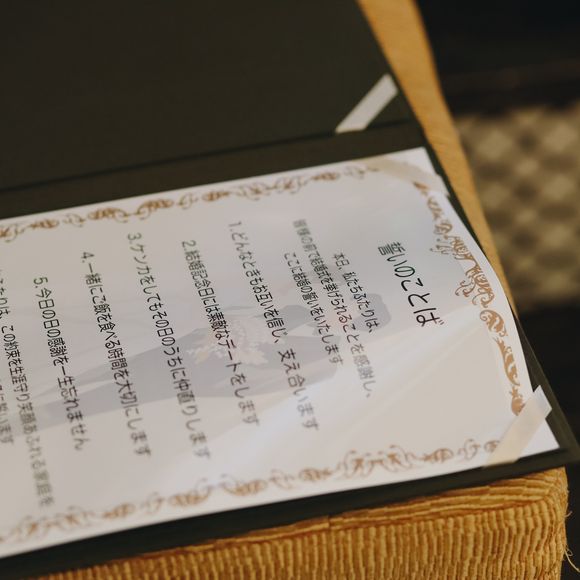 誓いのことば
本日、私たちふたりは、
皆様の前で結婚式を挙げられることを感謝し、
ここに結婚の誓いをいたします
1.どんなときもお互いを信じ、支え合います
2.結婚記念日には素敵なデートをします
3.ケンカをしてもその日のうちに仲直りします
4.一緒にご飯を食べる時間を大切にします
5.今日の日の感謝を一生忘れません
ふたりは、この約束を生涯守り笑顔あふれる家庭を
誓います